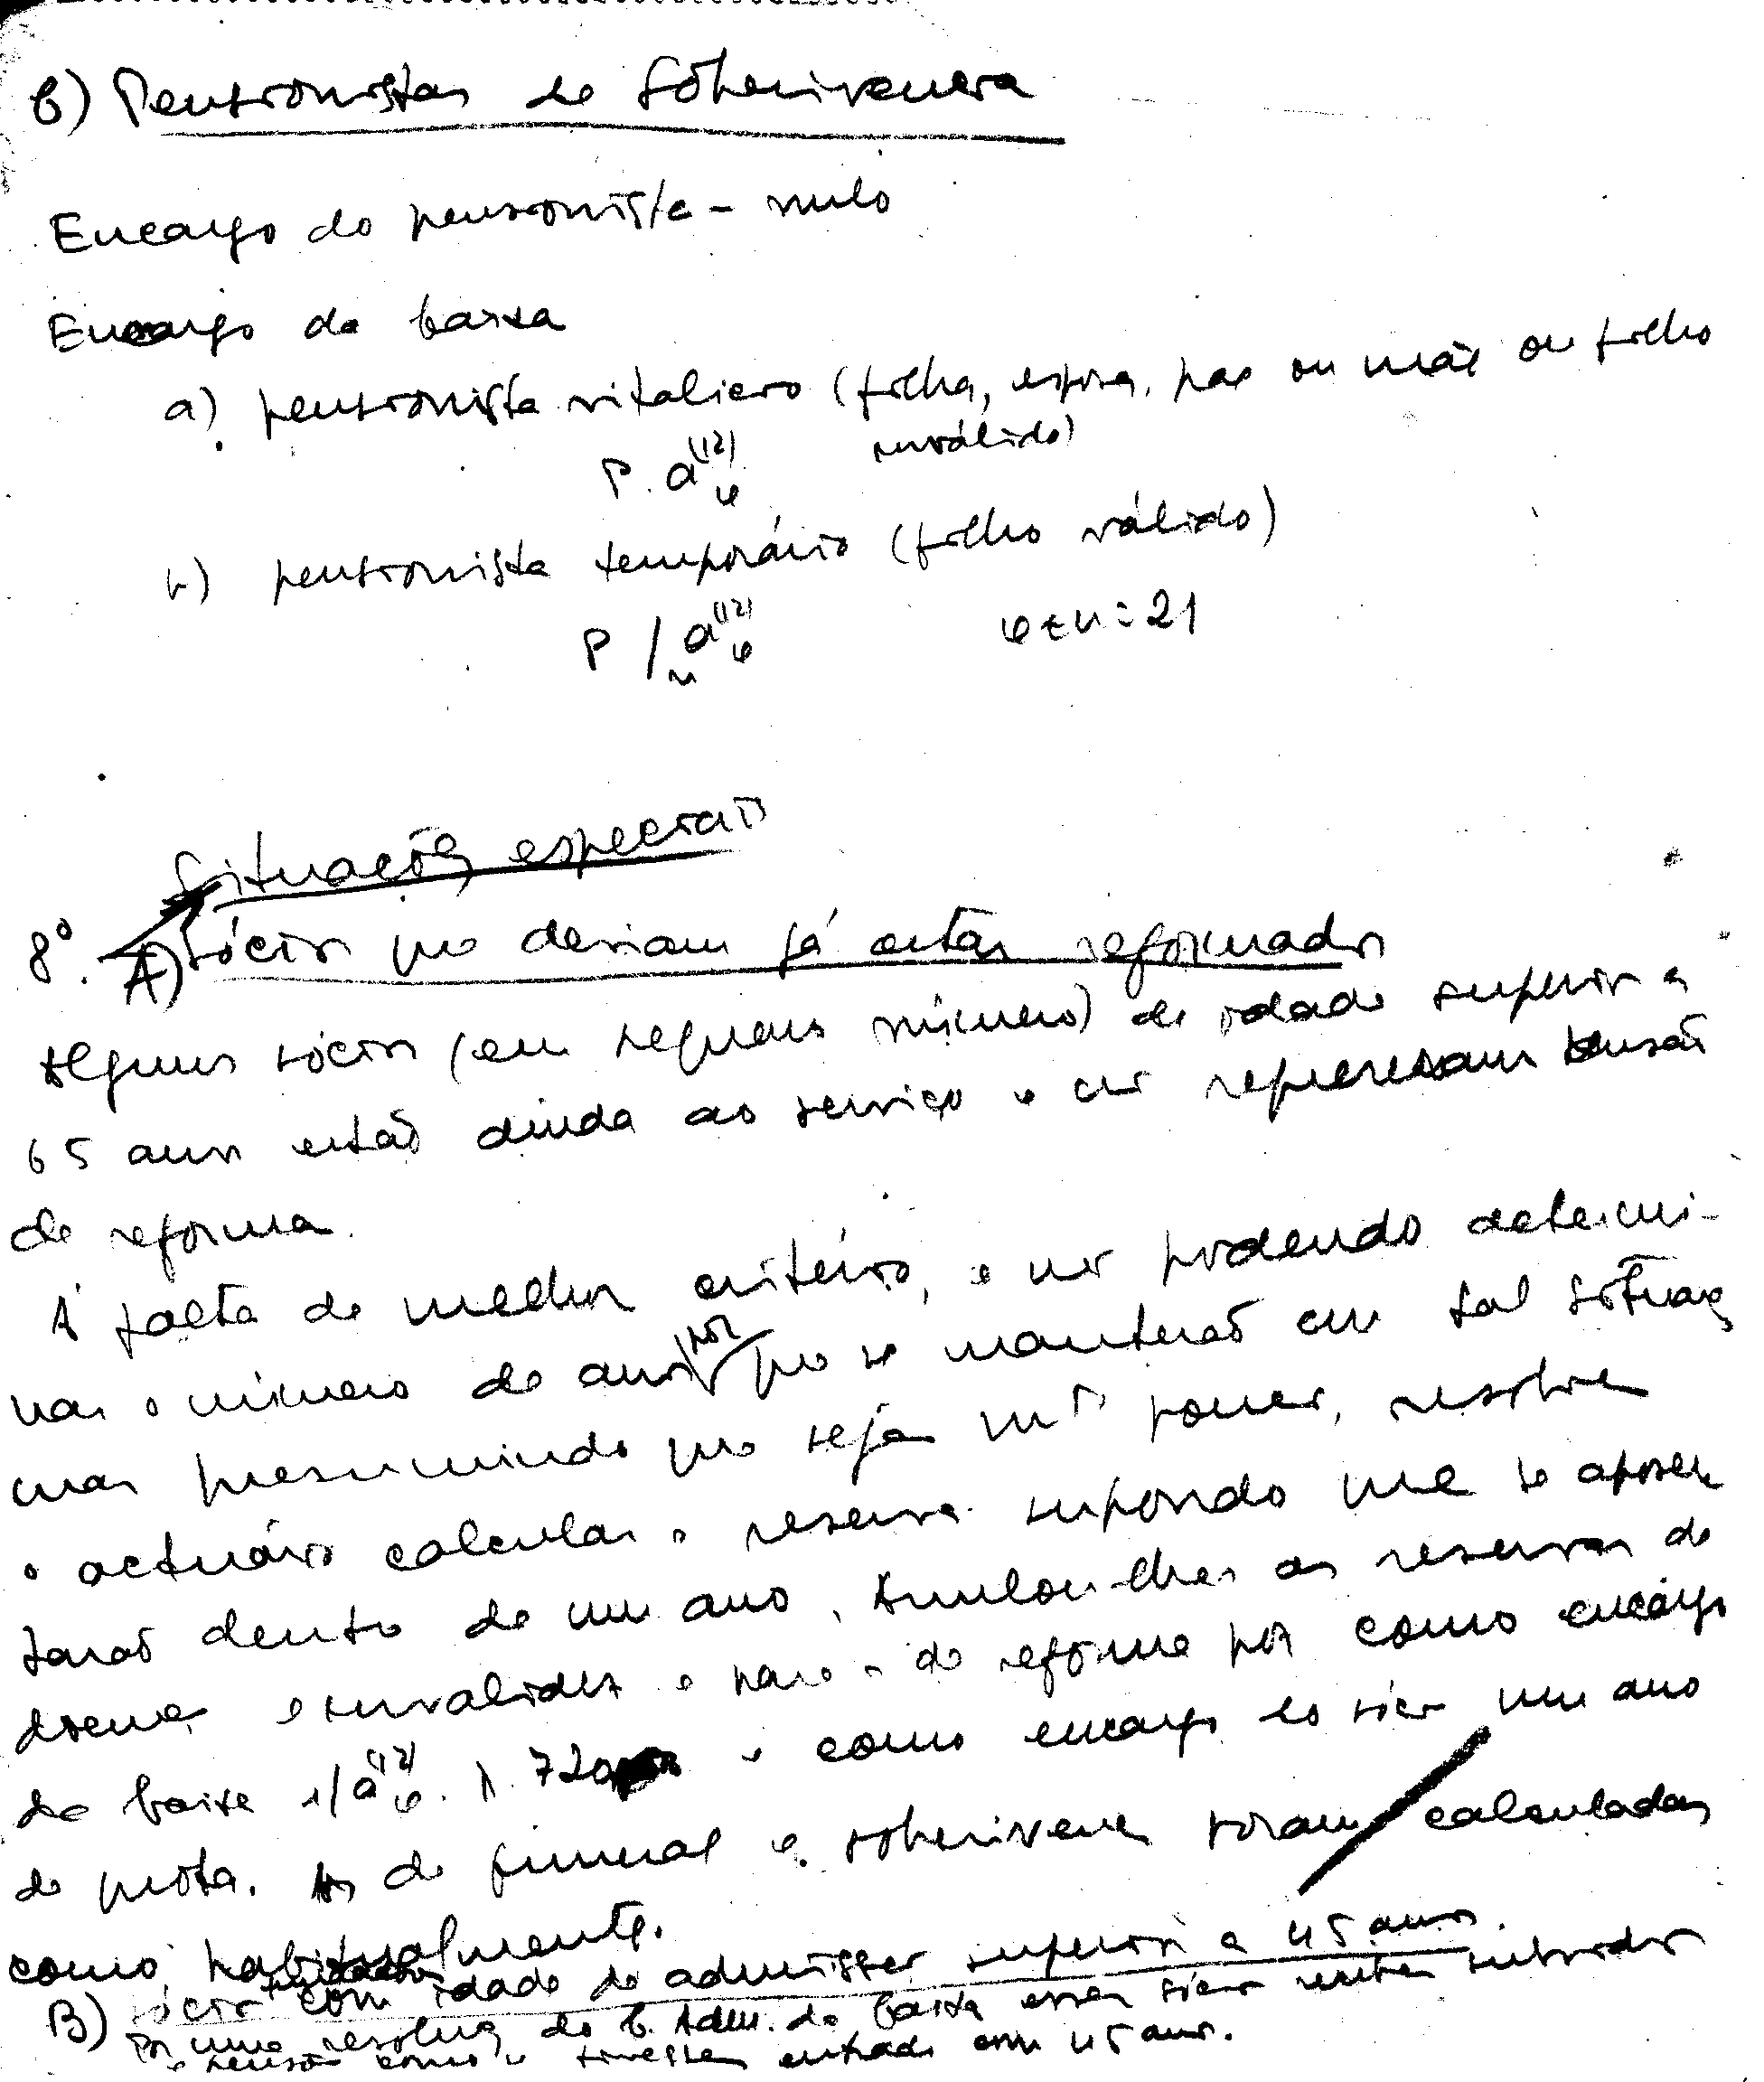 b) Pensionistas de Sobrevivencia
Encargo do pensionista - nulo
Encargo da Caixa
a) pensionista vitalicio (filha, esposa, pae ou mãe ou filho
inválido)
P. a⁽¹²⁾φ
b) pensionista temporário (filho válido)
P /ₙa⁽¹²⁾φ φ+n=21
Situações especiais
8º. A) Sócios que deviam já estar reformados
Alguns sócios (em pequeno número) de idade superior a
65 anos estão ainda ao serviço e não representam pensão
de reforma.
Á falta de melhor critério, e não podendo determi-
nar o número de anos por que se manterão em tal situação
mas presumindo que seja mto pouco, resolveu
o actuário calcular a reserva supondo que se aposen
tarão dentro de um ano. as reservas de
doença e invalidez e para a de reforma pôz como encargo
da Caixa 1/a⁽¹²⁾φ. λ. 720 e como encargo do sócio um ano
de quota. As de funeral e sobrevivencia foram calculadas
como habitualmente.
B) Sócios com idade de admissão superior a 45 anos.
Por uma resolução do C. Adm. da Caixa esses sócios subsidios
e pensão como se tivessem entrado com 45 anos.